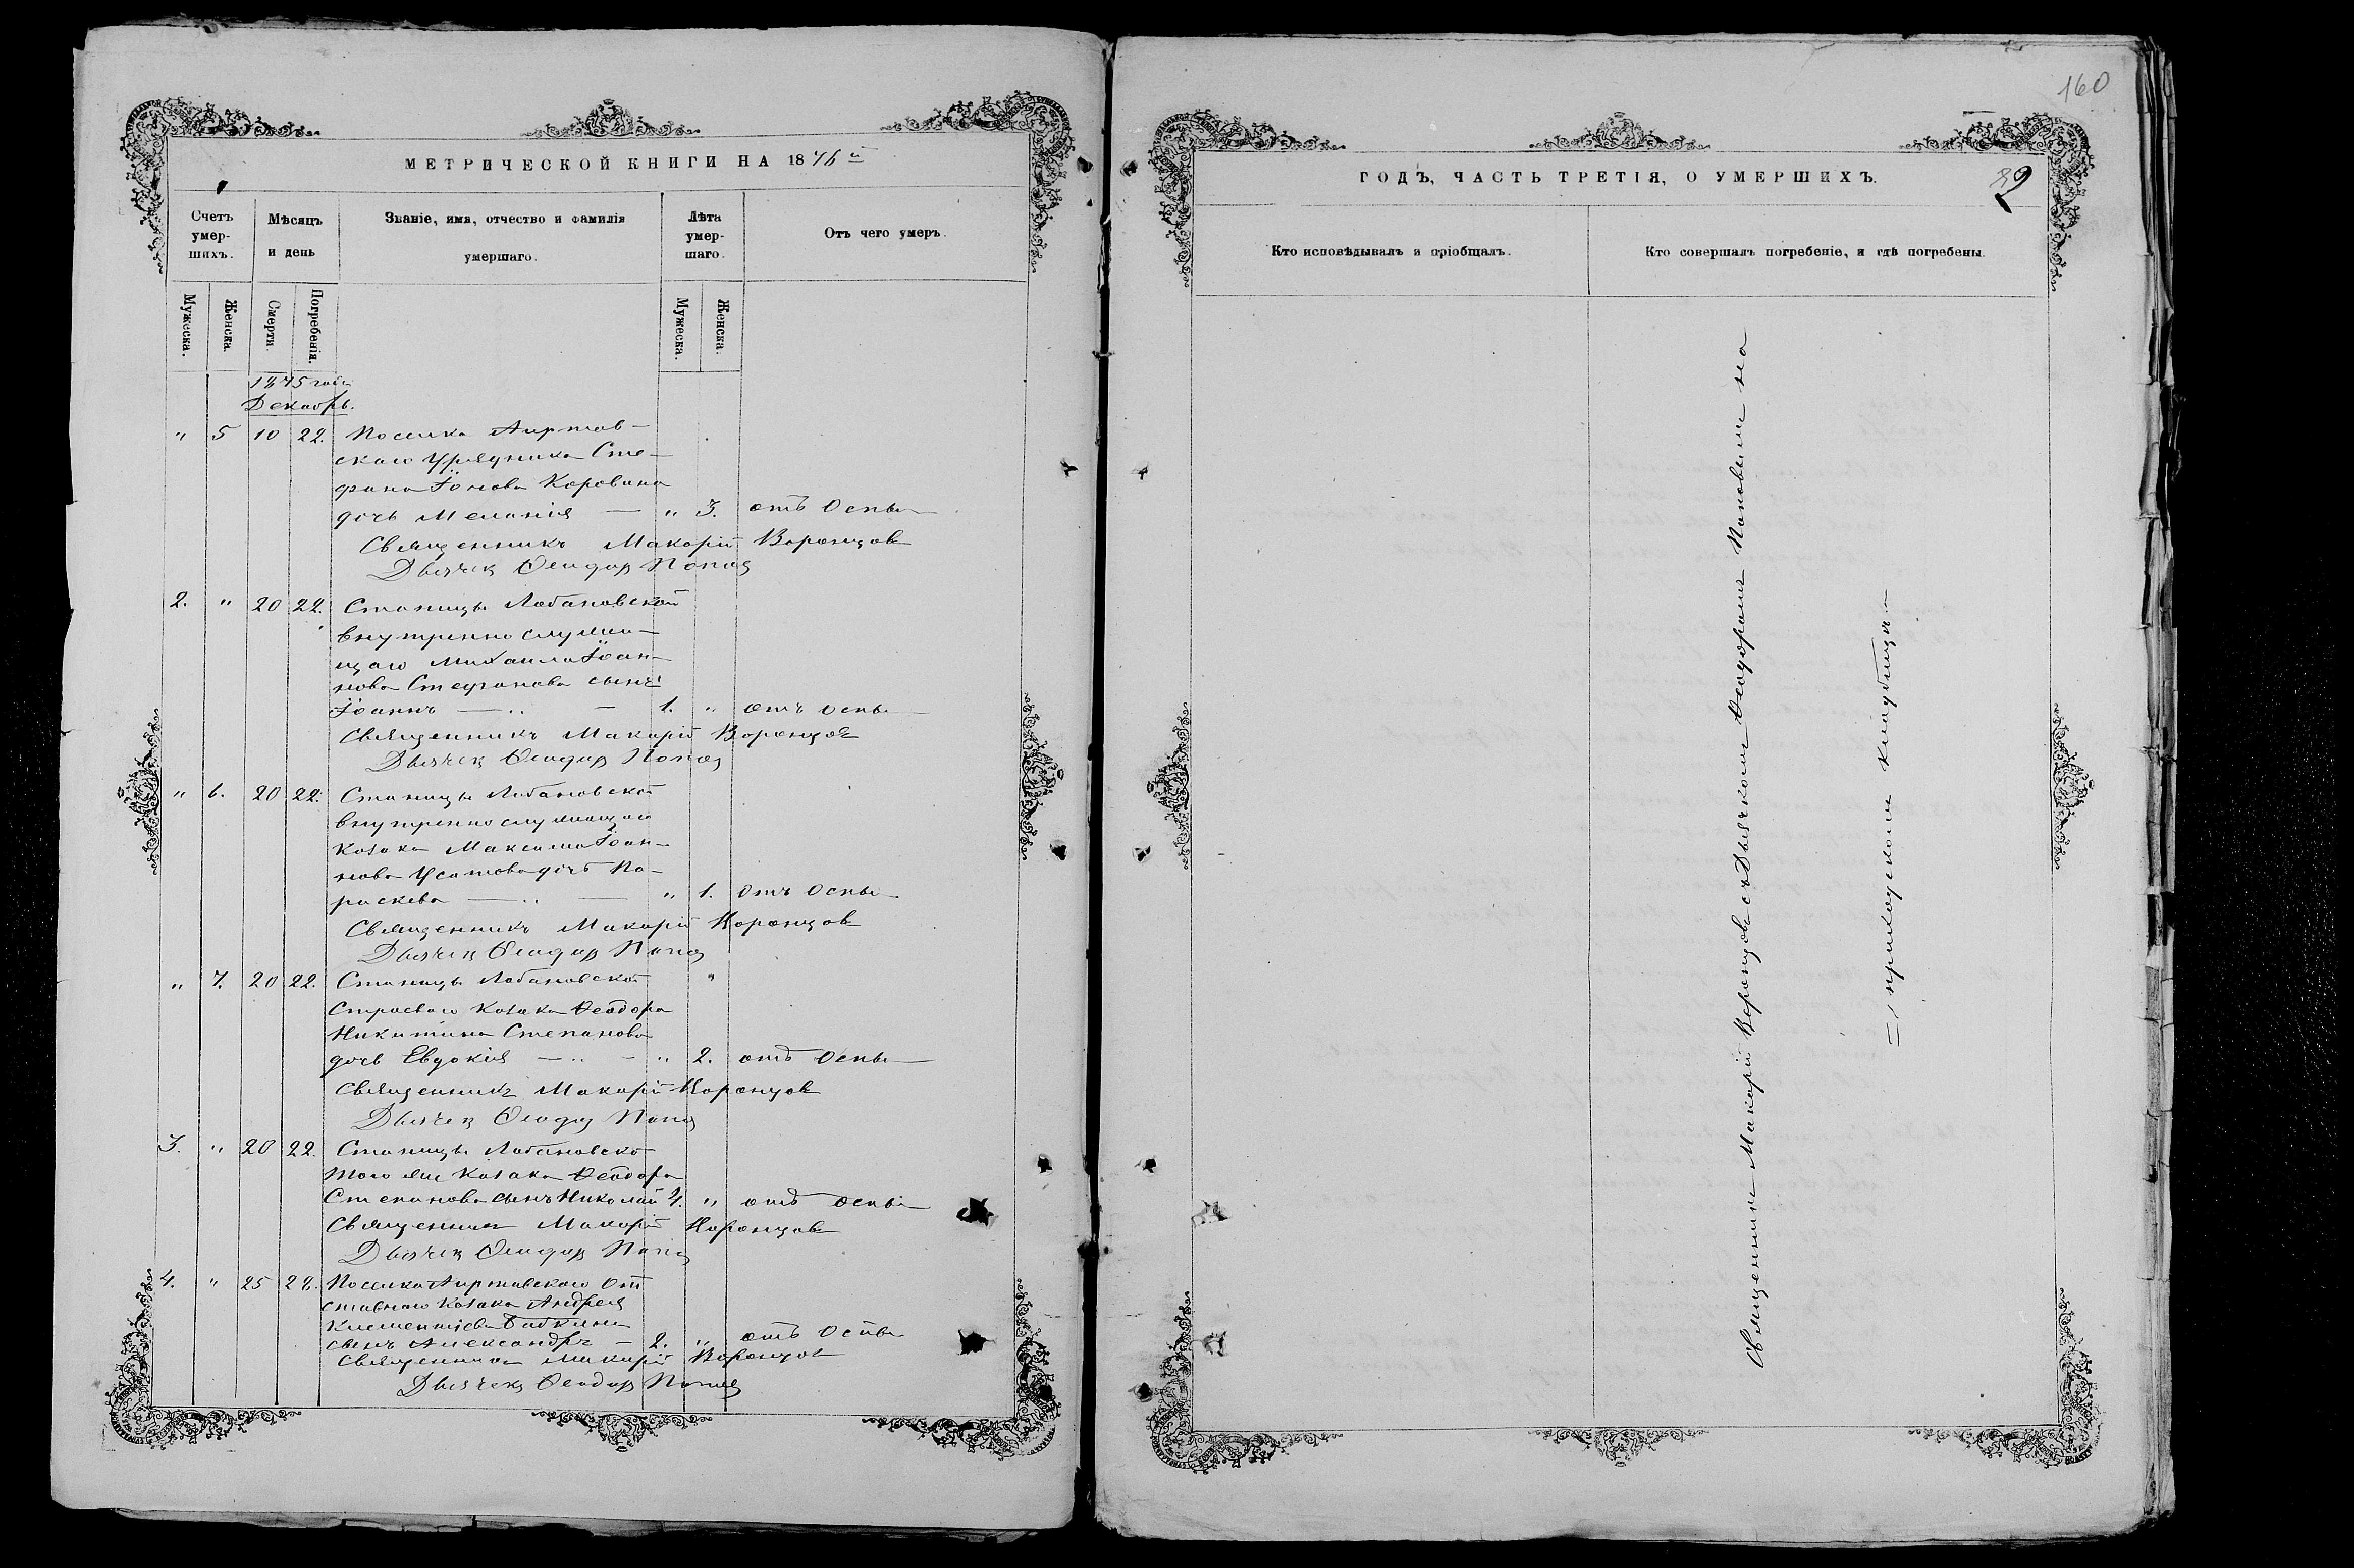 МЕТРИЧЕСКОЙ КНИГИ НА 1876й
Счетъ умер-шихъ.
Мѣсяцъ и день
Званіе, имя, отчество и фамилія умершаго.
Лѣта умер-шаго.
Отъ чего умеръ.
Мужеска.
Женска.
Смерти.
Погребенія.
Мужеска.
Женска.
1875 года
Декабрь.
" 5 10 22. Поселка Аиртав-
скаго Урядника Сте-
фана Іонова Коровина
дочь Меланія — " 3. отъ Оспы
Священникъ Макарій Воронцовъ
Дьячекъ Ѳеодоръ Поповъ
2. " 20 22. Станицы Лобановской
внутренно служа-
щаго Михаила Іоан-
нова Стефанова сынъ
Іоаннъ — 1. " отъ Оспы
Священникъ Макарій Воронцовъ
Дьячекъ Ѳеодоръ Поповъ
" 6. 20 22. Станицы Лобановской
внутренно служащаго
Козака Максима Іоан-
нова Усатова дочь Па-
раскева — " 1. Отъ Оспы
Священникъ Макарій Воронцовъ
Дьячекъ Ѳеодоръ Поповъ
" 7. 20 22. Станицы Лобановской
Строеваго Козака Ѳеодора
Никитина Степанова
дочь Евдокія — " 2. отъ Оспы
Священникъ Макарій Воронцовъ
Дьячекъ Ѳеодоръ Поповъ
3. " 20 22. Станицы Лобановской
того же Козака Ѳеодора
Степанова сынъ Николай 4. " отъ Оспы
Священникъ Макарій Воронцовъ
Дьячекъ Ѳеодоръ Поповъ
4. " 25 28. Поселка Аиртавскаго От
ставнаго Козака Андрея
Климентіева Бабкина
сынъ Александръ — 2. " отъ Оспы
Священникъ Макарій Воронцовъ
Дьячекъ Ѳеодоръ Поповъ
160
ГОДЪ, ЧАСТЬ ТРЕТІЯ, О УМЕРШИХЪ.
Кто исповѣдывалъ и пріобщалъ.
Кто совершалъ погребеніе, и гдѣ погребены.
Священникъ Макарій Воронцовъ съ Дьячкомъ Ѳеодоромъ Поповымъ на
приходскомъ кладбищѣ